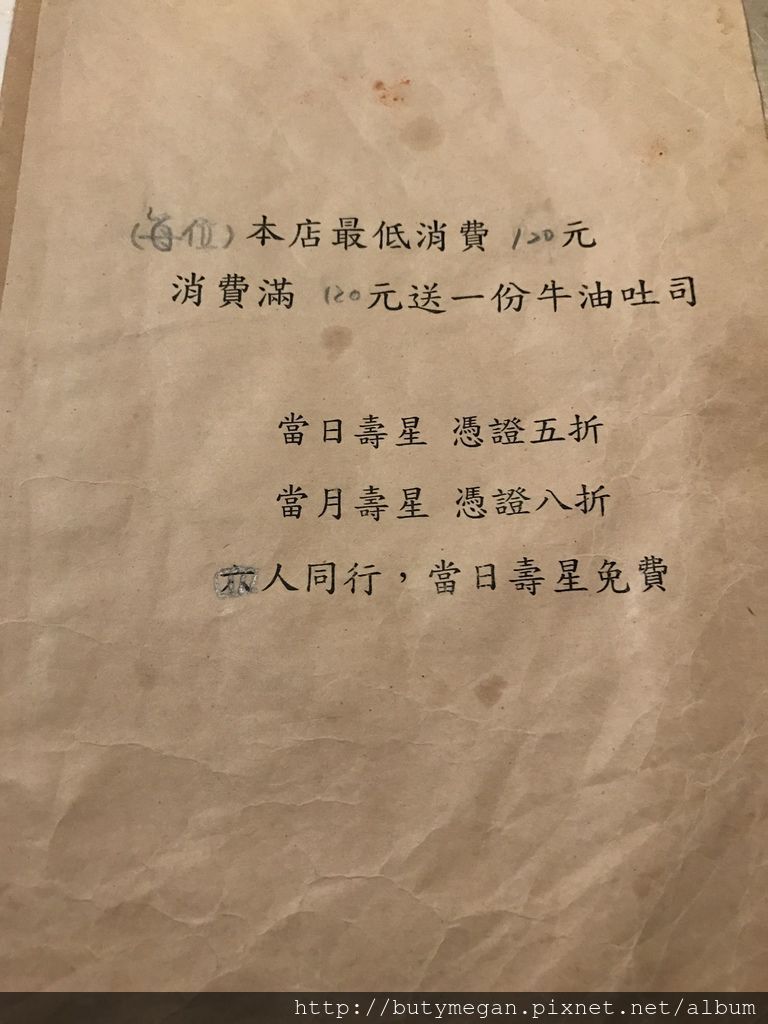 (每位)本店最低消費 120元
消費滿 120元送一份牛油吐司
當日壽星 憑證五折
當月壽星 憑證八折
六人同行，當日壽星免費
http://butymegan.pixnet.net/album